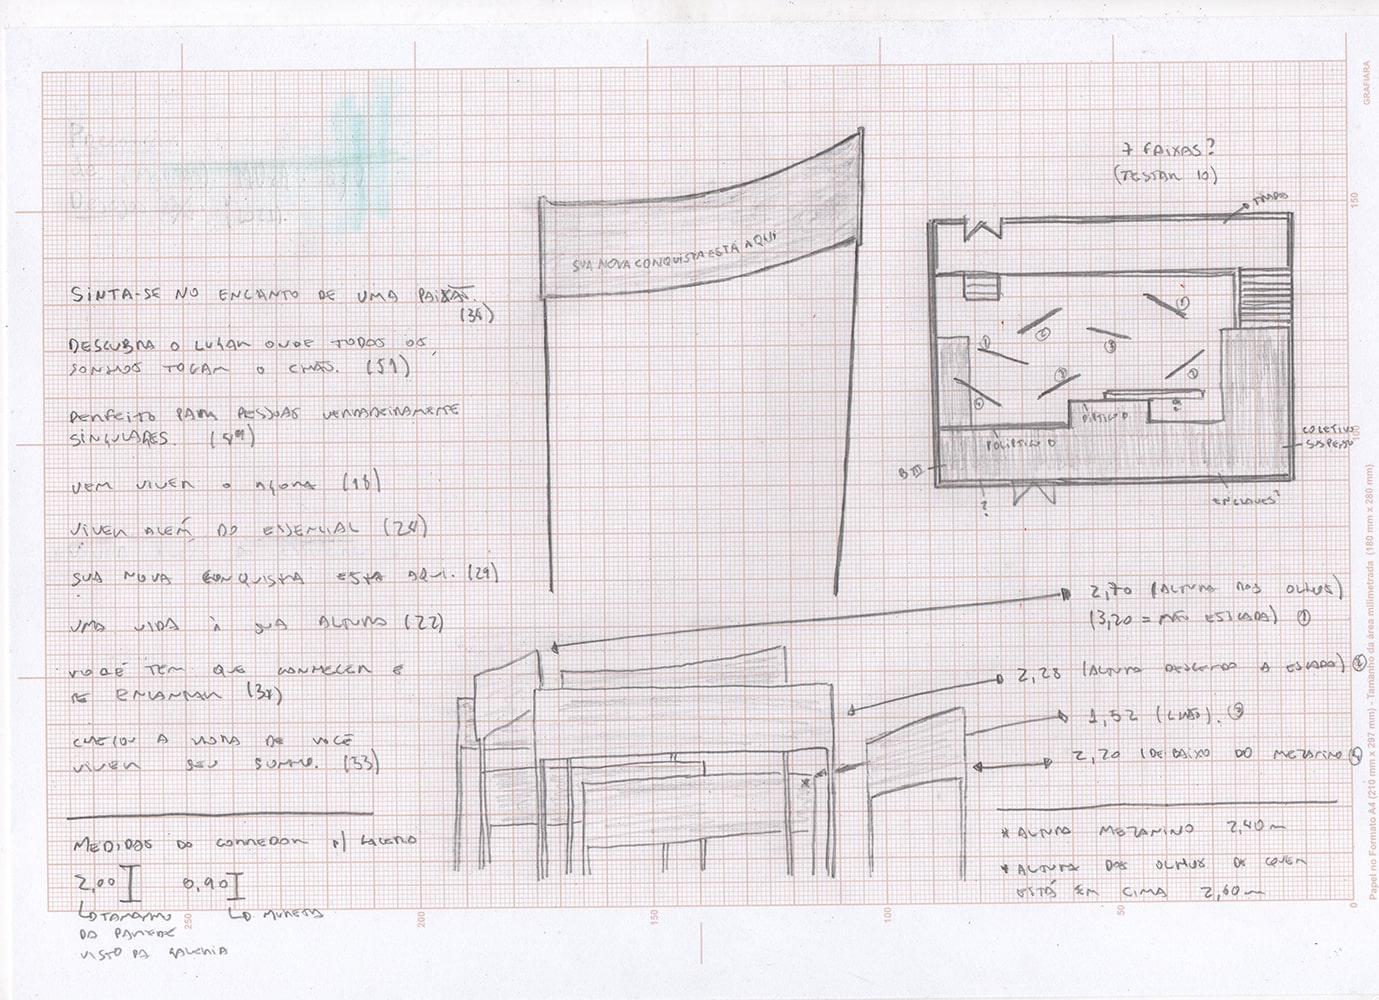 SINTA-SE NO ENCANTO DE UMA PAIXÃO.
(34)
DESCUBRA O LUGAR ONDE TODOS OS
SONHOS TOCAM O CHÃO. (51)
PERFEITO PARA PESSOAS VERDADEIRAMENTE
SINGULARES. (49)
VEM VIVER O AGORA (18)
VIVER ALÉM DO ESSENCIAL (24)
SUA NOVA CONQUISTA ESTÁ AQUI. (29)
UMA VIDA À SUA ALTURA (22)
VOCÊ TEM QUE CONHECER E
SE ENCANTAR (34)
CHEGOU A HORA DE VOCÊ
VIVER SEU SONHO. (33)
MEDIDAS DO CORREDOR P/
2,00 0,90
TAMANHO
DA PAREDE
VISTO DA GALERIA
MURETA
SUA NOVA CONQUISTA ESTÁ AQUI
7 FAIXAS?
(TESTAR 10)
POLÍPTICO D
DÍPTICO D
COLETIVO
SUSPENSO
ENCLAVES?
?
2,70 (ALTURA DOS OLHOS)
(3,20 = MÃO ESTICADA) ①
2,28 (ALTURA DESCENDO A ESCADA) ②
1,52 (CHÃO). ③
2,20 (DEBAIXO DO MEZANINO) ④
* ALTURA MEZANINO 2,40m
* ALTURA DOS OLHOS DE QUEM
ESTÁ EM CIMA 2,60m
250
200
150
100
50
0
150
100
GRAFIARA
Papel no Formato A4 (210 mm x 297 mm) - Tamanho da área milimetrada (180 mm x 280 mm)